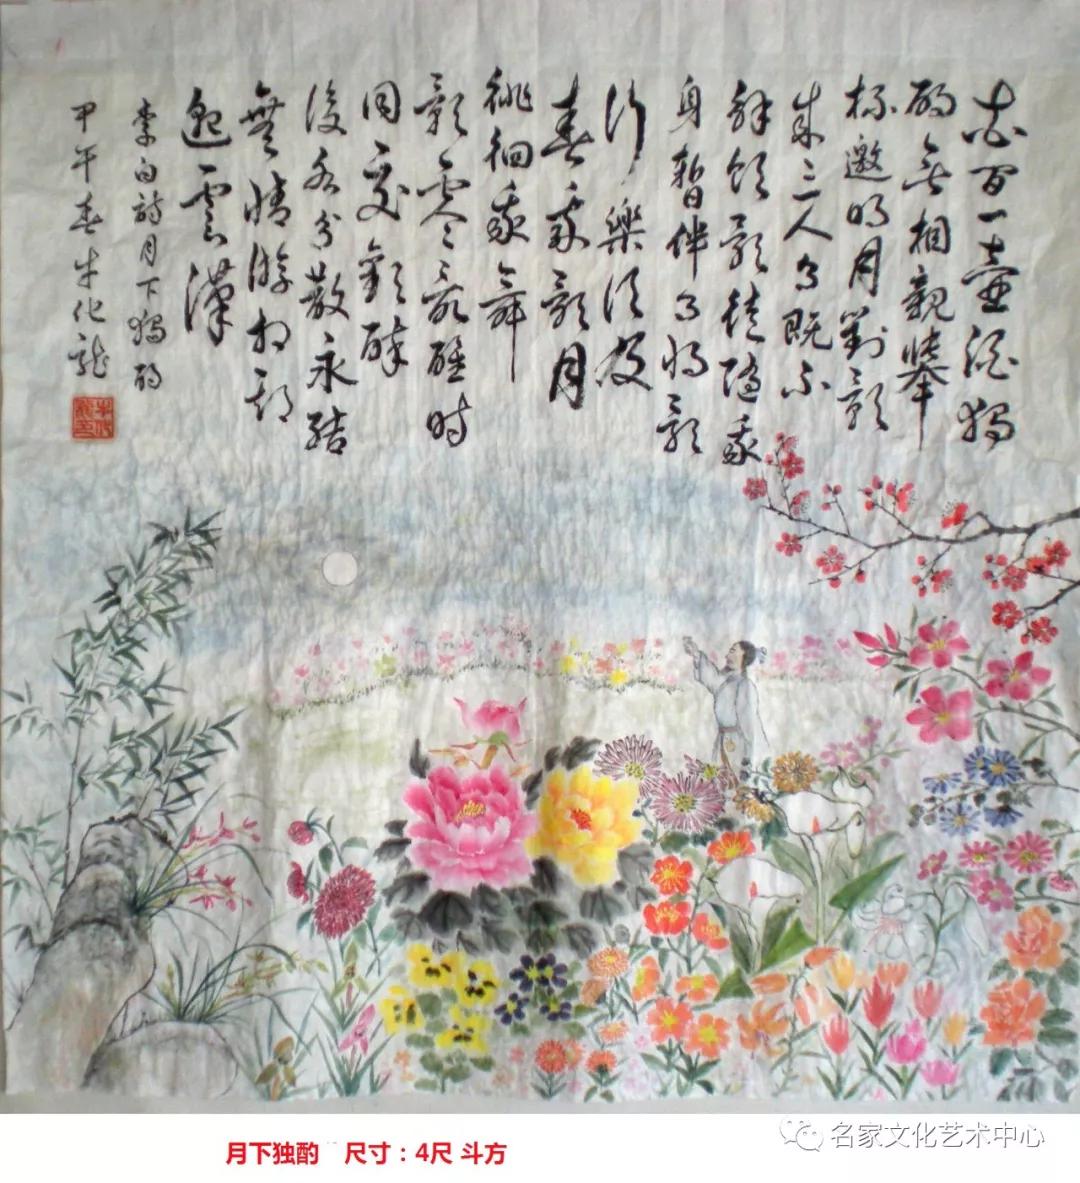 花間一壺酒獨
酌無相親舉
杯邀明月對影
成三人月既不
解飲影徒隨我
身暫伴月將影
行樂須及
春我歌月
徘徊我舞
影零亂醒時
同交歡醉
後各分散永結
無情游相期
邈雲漢
李白詩月下獨酌
甲午春牛化龍
月下独酌 尺寸：4尺 斗方
名家文化艺术中心